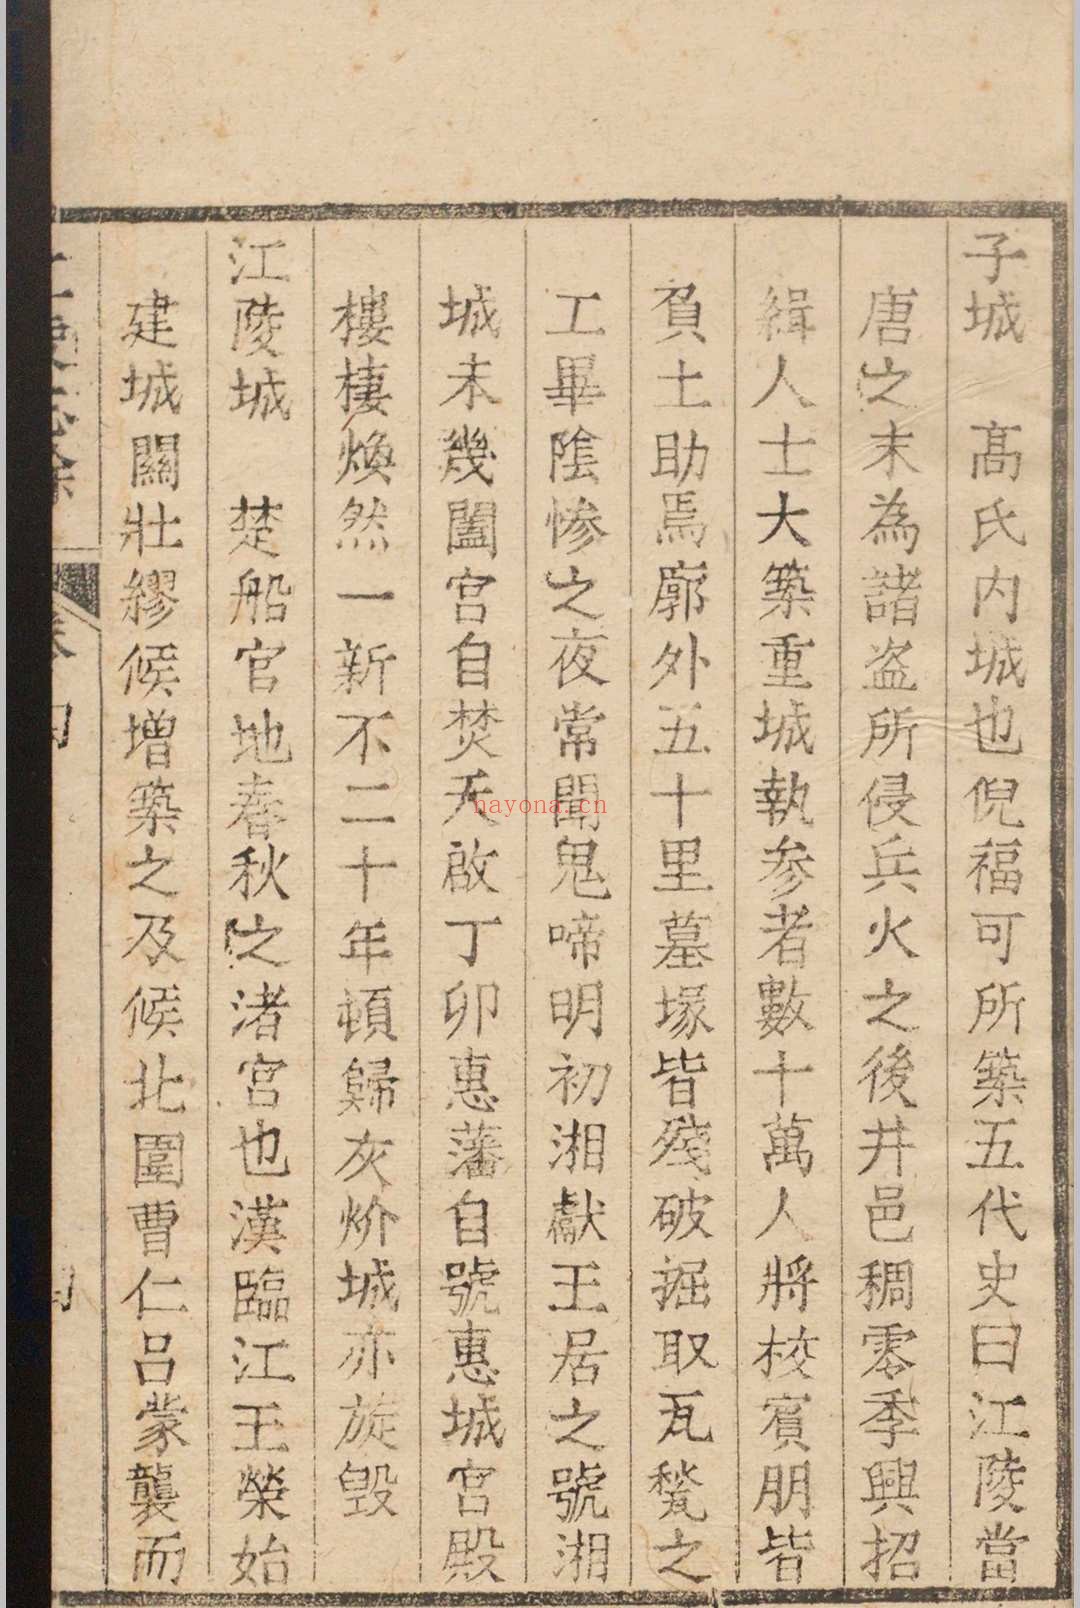 子城　高氏内城也倪福可所築五代史曰江陵當
唐之末為諸盗所侵兵火之後井邑稠零季興招
緝人士大築重城執参者數十萬人將校賓朋皆
負土助焉廓外五十里墓塚皆殘破掘取瓦甃之
工畢陰惨之夜常聞鬼啼明初湘獻王居之號湘
城未幾闔宫自焚天啟丁卯惠藩自號惠城宫殿
樓棲煥然一新不二十年頓歸灰炌城亦旋毁
江陵城　楚船官地春秋之渚宫也漢臨江王榮始
建城關壮繆候增築之及候北圍曹仁呂蒙襲而
卷四
nayona.cn